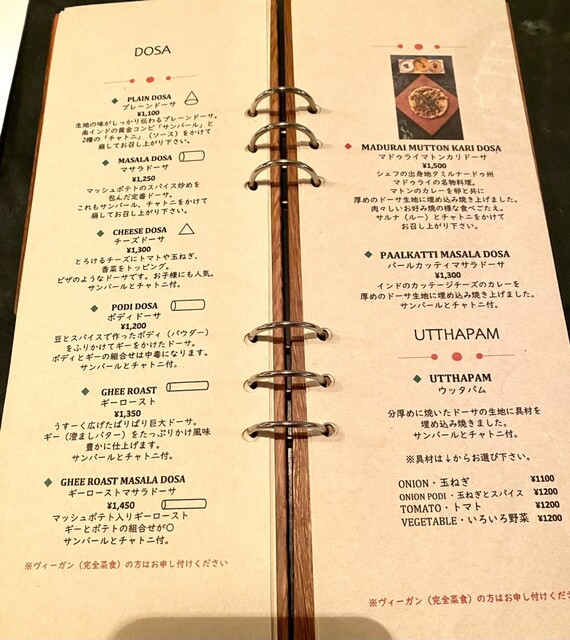 DOSA
PLAIN DOSA
プレーンドーサ
¥1,100
生地の味がしっかり伝わるプレーンドーサ。
南インドの黄金コンビ「サンバール」と
2種の「チャトニ」（ソース）をかけて
崩してお召し上がり下さい。
MASALA DOSA
マサラドーサ
¥1,250
マッシュポテトのスパイス炒めを
包んだ定番ドーサ。
これもサンバール、チャトニをかけて
崩してお召し上がり下さい。
CHEESE DOSA
チーズドーサ
¥1,300
とろけるチーズにトマトや玉ねぎ、
香菜をトッピング。
ピザのようなドーサです。お子様にも人気。
サンバールとチャトニ付。
PODI DOSA
ポディドーサ
¥1,200
豆とスパイスで作ったポディ（パウダー）
をふりかけてギーをかけたドーサ。
ポディとギーの組合せは中毒になります。
サンバールとチャトニ付。
GHEE ROAST
ギーロースト
¥1,350
うすーく広げたぱりぱり巨大ドーサ。
ギー（澄ましバター）をたっぷりかけ風味
豊かに仕上げます。
サンバールとチャトニ付。
GHEE ROAST MASALA DOSA
ギーローストマサラドーサ
¥1,450
マッシュポテト入りギーロースト
ギーとポテトの組合せが〇
サンバールとチャトニ付。
※ヴィーガン（完全菜食）の方はお申し付けください
MADURAI MUTTON KARI DOSA
マドゥライマトンカリドーサ
¥1,500
シェフの出身地タミルナードゥ州
マドゥライの名物料理。
マトンのカレーを卵と共に
厚めのドーサ生地に埋め込み焼き上げました。
肉々しいお好み焼の様な食べごたえ。
サルナ（ルー）とチャトニをかけて
お召し上がり下さい。
PAALKATTI MASALA DOSA
パールカッティマサラドーサ
¥1,300
インドのカッテージチーズのカレーを
厚めのドーサ生地に埋め込み焼き上げました。
サンバールとチャトニ付。
UTTHAPAM
UTTHAPAM
ウッタパム
分厚めに焼いたドーサの生地に具材を
埋め込み焼きました。
サンバールとチャトニ付。
※具材は↓からお選び下さい。
ONION・玉ねぎ ¥1100
ONION PODI・玉ねぎとスパイス ¥1200
TOMATO・トマト ¥1200
VEGETABLE・いろいろ野菜 ¥1200
※ヴィーガン（完全菜食）の方はお申し付けくださ